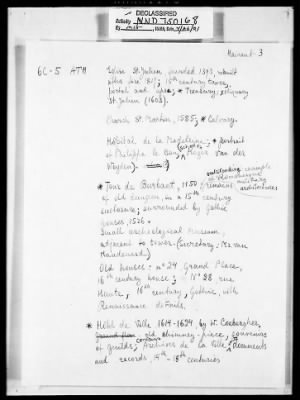 DECLASSIFIED
Authority NND 750168
Hainaut 3
6C-5 ATH
Eglise St. Julien, founded 1393, rebuilt
after fire 1817; 15th century tower,
portal and apse; * Treasury: reliquary
St. Julien (1603).
Church St. Martin, 1585; * Calvary.
Hôpital de la Madeleine: * portrait
of Philippe le Bon, Rogier van der
Weyden).
* Tour de Burbant, 1150, remains
outstanding example
of Romanesque
military
architecture
of old donjon, in a 15th century
enclosure; surrounded by gothic
houses, 1526.
Small archeological Museum,
adjacent to tower. (Secretary: Mr. van
Old houses: n° 24 Grand Place,
16th century house; n° 28 rue
Haute, 16th century, Gothic, with
Renaissance details.
* Hôtel de Ville 1614-1624, by W. Coebergher,
Ground floor old chimney-piece, souvenirs
of guilds; contains Archives de la Ville, documents
and records, 14th-18th centuries